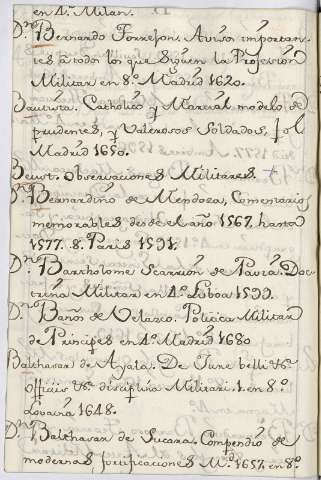 en 4º Milan.
Dn Bernardo Torrefon. Avisos importan-
tes à todos los que Siguen la Profession
Militar en 8º Madrid 1620.
Bautista. Catholico y Marcial modelo de
prudentes, y Valerosos Soldados, fol
Madrid 1650.
Beust. Observaciones Militares.
Dn Bernardino de Mendoza, Comentarios
memorables desde el año 1567. hasta
1577. 8. Paris 1591.
Dn Bartholome Scarrion de Pavia. Doc-
trina Militar en 4º Lisboa 1599.
Dn Baños de Velazco. Politica Militar
de Principes en 4º Madrid 1680
Balthasar de Ayala. De Iure belli &
Officiis & disciplina Militari. 1. en 8º.
Lovaina 1648.
Dn Balthasar de Sicara. Compendio de
modernas fortificaciones Md. 1657. en 8º.